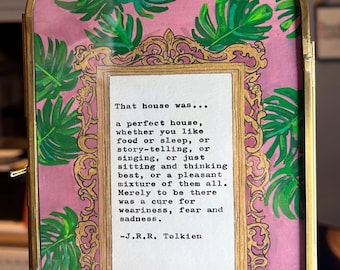 That house was...
a perfect house,
whether you like
food or sleep, or
story-telling, or
singing, or just
sitting and thinking
best, or a pleasant
mixture of them all.
Merely to be there
was a cure for
weariness, fear and
sadness.
-J.R.R. Tolkien